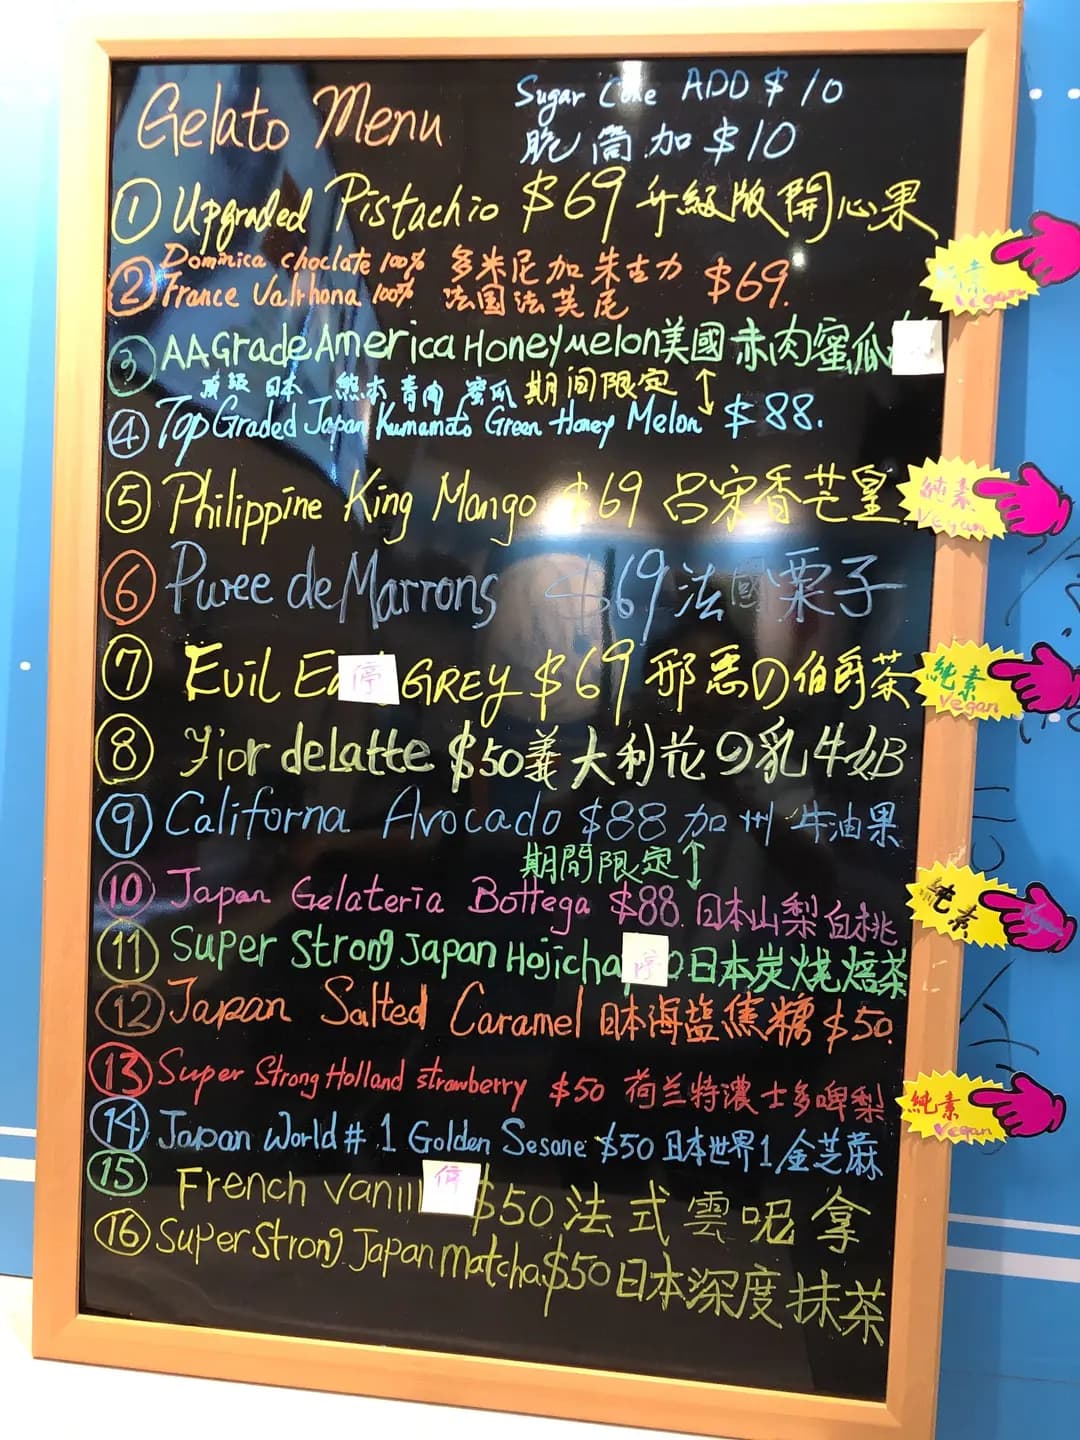 Gelato Menu
Sugar Cone ADD $10
脆筒加 $10
① Upgraded Pistachio $69 升級版開心果
② Dominica choclate 100% 多米尼加朱古力 $69.
France Valrhona 100% 法国法芙尼
純素
Vegan
③ AAGrade America HoneyMelon 美國赤肉蜜瓜
頂級日本 熊本青肉蜜瓜 期间限定 ↕
④ Top Graded Japan Kumamoto Green Honey Melon $88.
⑤ Philippine King Mango $69 呂宋香芒皇
純素
Vegan
⑥ Puree de Marrons $69 法國栗子
⑦ Evil Ea 停 GREY $69 邪惡の伯爵茶
純素
Vegan
⑧ Fior deLatte $50 義大利花の乳牛奶
⑨ Californa Avocado $88 加州牛油果
期間限定 ↕
⑩ Japan Gelateria Bottega $88. 日本山梨白桃
純素
⑪ Super Strong Japan Hojicha 停 0 日本炭烧焙茶
⑫ Japan Salted Caramel 日本海盐焦糖 $50.
⑬ Super Strong Holland strawberry $50 荷兰特濃士多啤梨
純素
Vegan
⑭ Japan World # 1 Golden Sesane $50 日本世界1金芝蔴
⑮ French vanill 停 $50 法式雲呢拿
⑯ Super Strong Japan matcha $50 日本深度抹茶